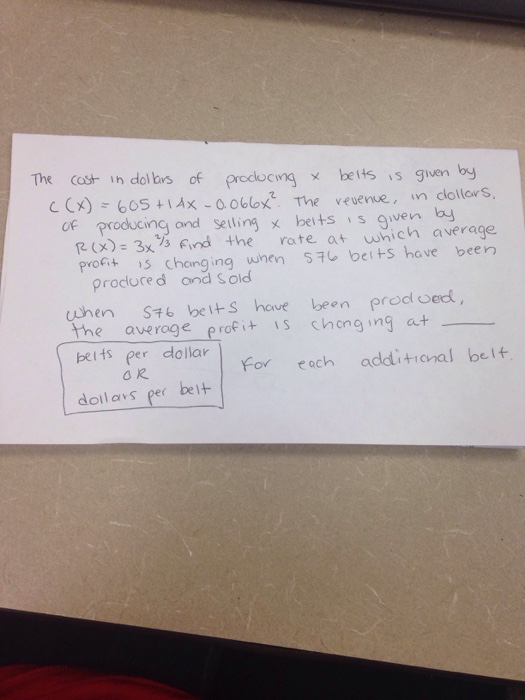 The cost in dollars of producing x belts is given by
C(x) = 605 + 14x - 0.060x². The revenue, in dollars,
of producing and selling x belts is given by
R(x) = 3x^2/3 Find the rate at which average
profit is changing when 576 belts have been
produred and sold
when 576 belts have been produced,
the average profit is changing at ____
belts per dollar
OR
dollars per belt
For each additional belt.